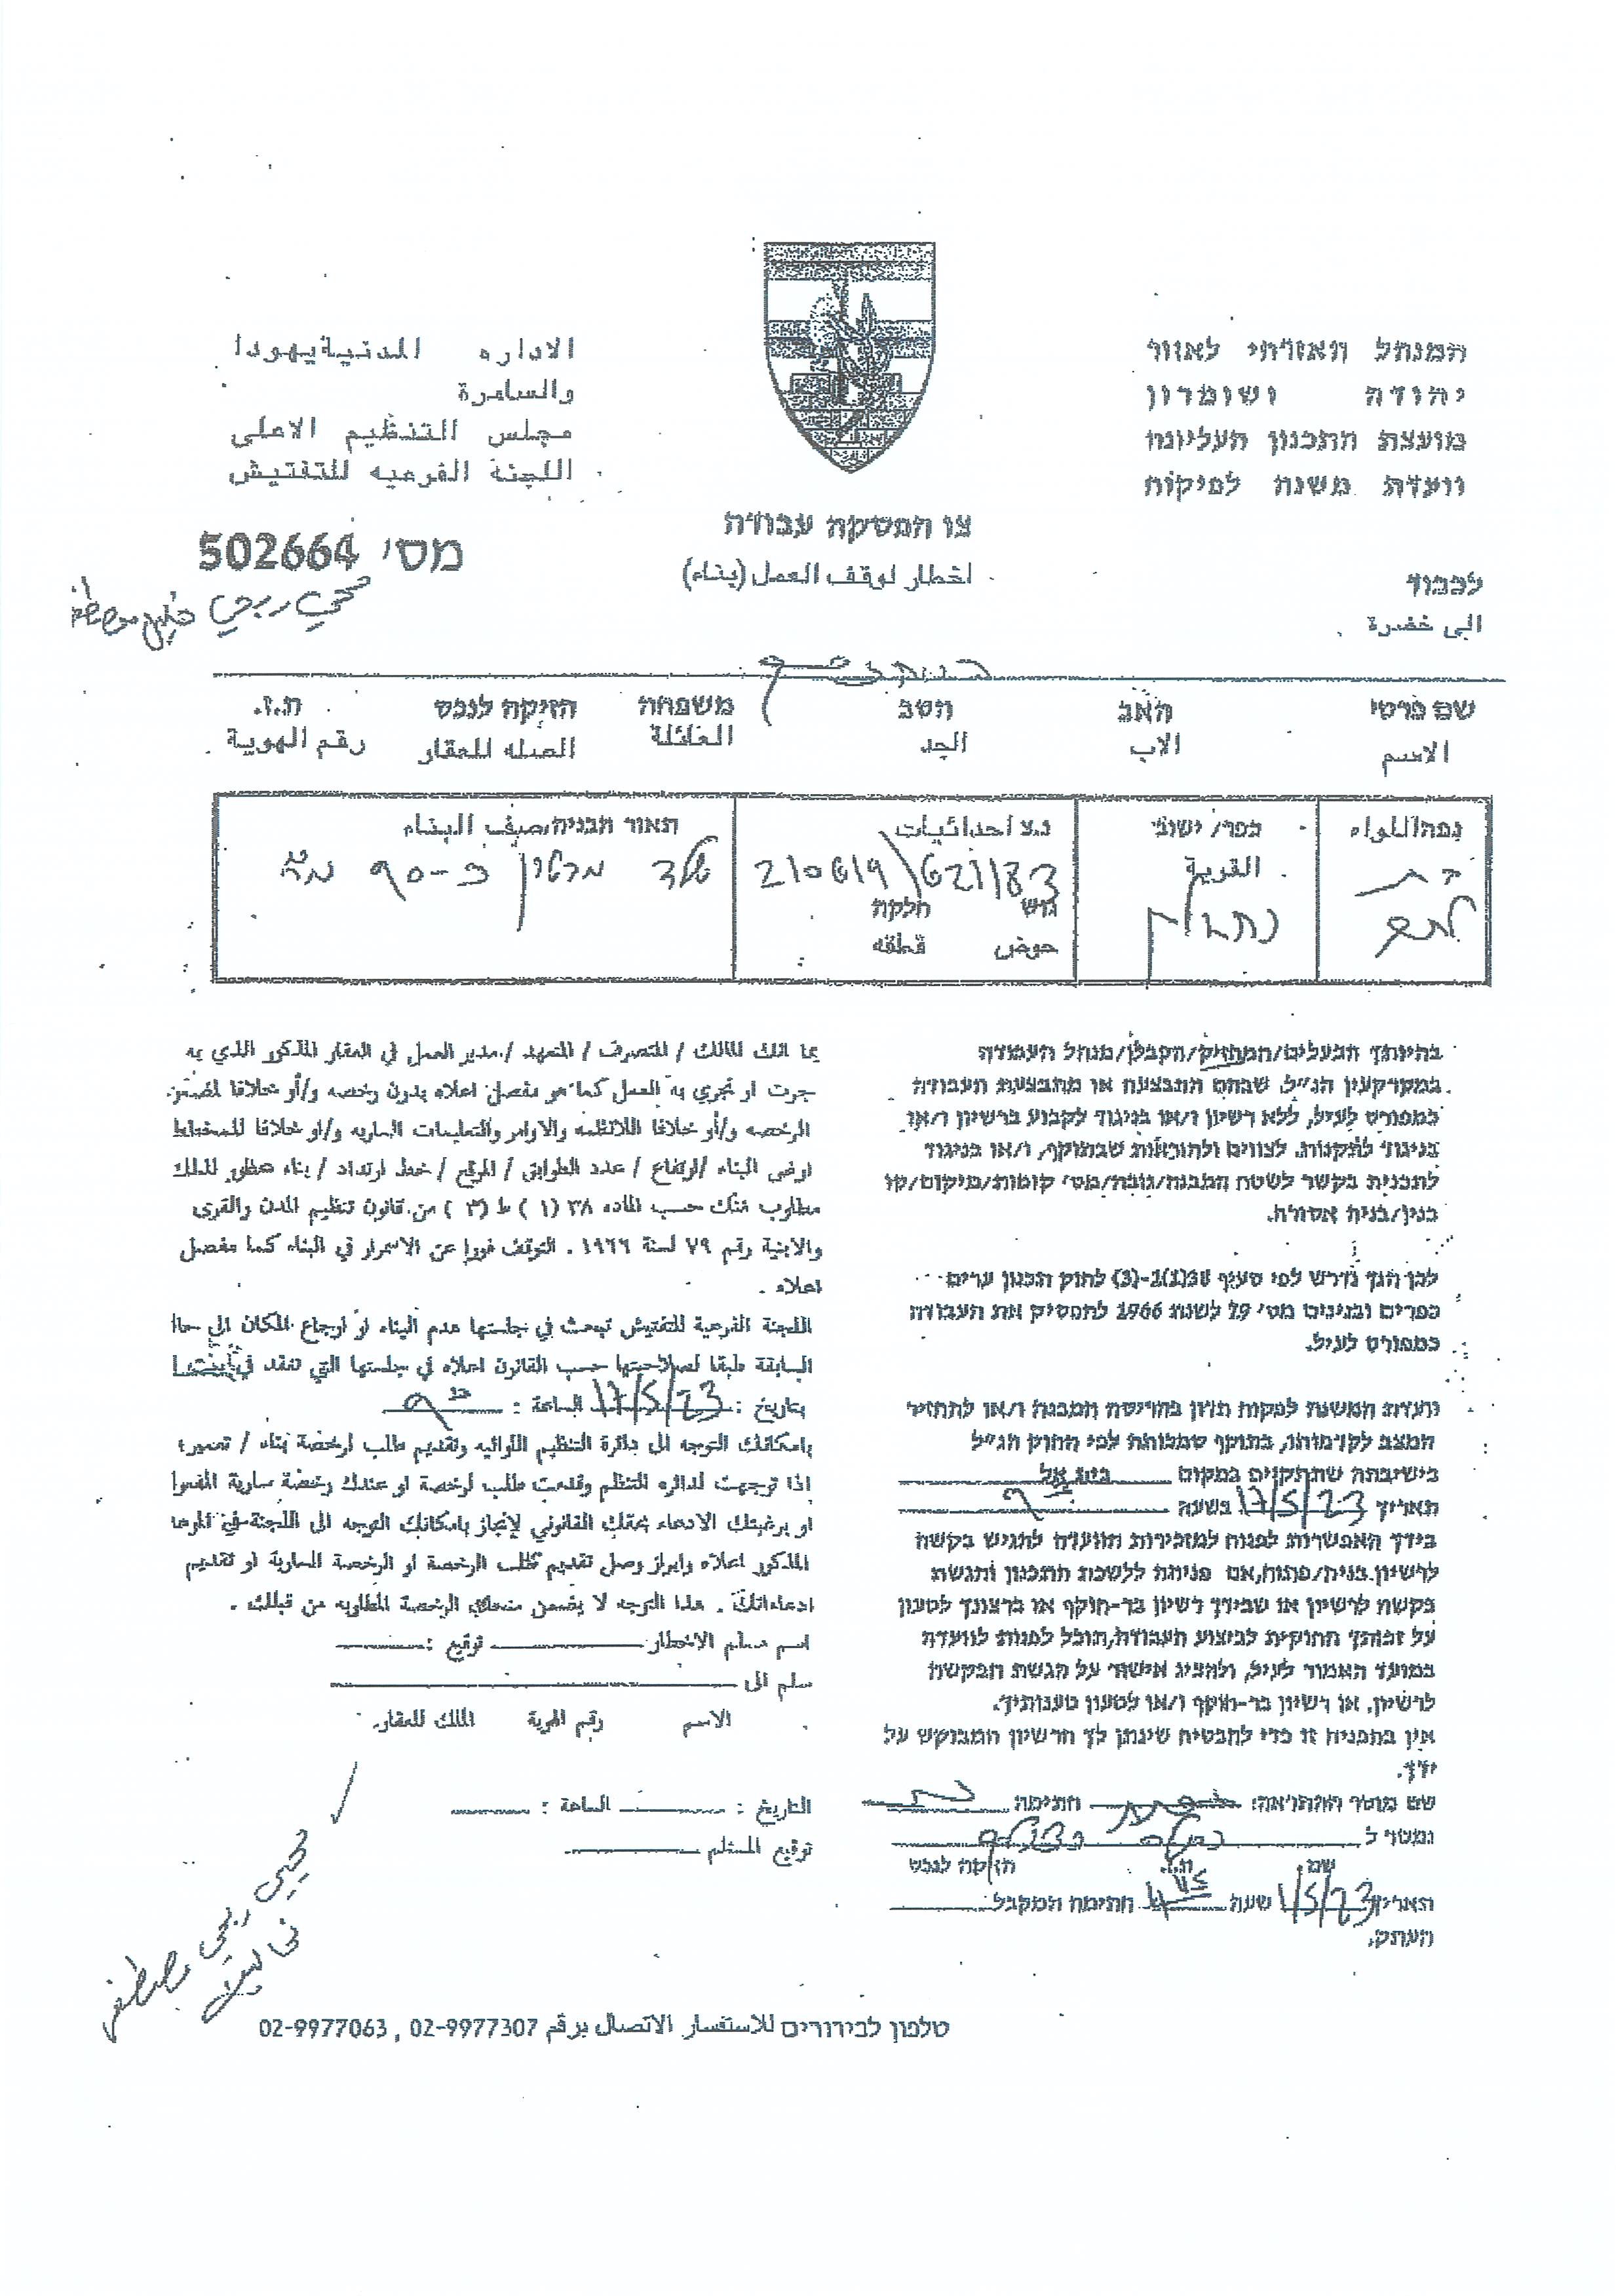 המנהל האזרחי לאזור
יהודה ושומרון
מועצת התכנון העליונה
וועדת משנה לפיקוח
الاداره المدنية يهودا
والسامرة
مجلس التنظيم الاعلى
اللجنة الفرعيه للتفتيش
צו הפסקה עבודה
اخطار لوقف العمل (بناء)
מס' 502664
לכבוד
الى حضرة
שם פרטי האב הסב משפחה הזיקה לנכס ת.ז.
الاسم الاب الجد العائلة الصله للعقار رقم الهوية
נפה/اللواء
כפר/ישוב
القرية
נ.צ احداثيات
210619/621183
גוש חלקה
حوض قطعه
תאור הבניה/وصف البناء
בהיותך הבעלים/המחזיק/הקבלן/מנהל העבודה
במקרקעין הנ"ל, שבהם התבצעה או מתבצעת העבודה
כמפורט לעיל, ללא רשיון ו/או בניגוד לקבוע ברשיון ו/או
בניגוד לתקנות, לצווים ולהוראות שבתוקף, ו/או בניגוד
לתכנית בקשר לשטח המבנה/גובה/מס' קומות/מיקום/קו
בנין/בניה אסורה.
לכן הנך נדרש לפי סעיף 38(1)-(3) לחוק תכנון ערים
כפרים ובנינים מס' 79 לשנת 1966 להפסיק את העבודה
כמפורט לעיל.
וועדת המשנה לפקוח תדון בהריסת המבנה ו/או להחזיר
המצב לקדמותו, בתוקף סמכותה לפי החוק הנ"ל
בישיבתה שתתקיים במקום בית אל
תאריך 17/5/23 בשעה
בידך האפשרות לפנות למזכירות הוועדה להגיש בקשה
לרשיון בניה/פתוח, אם פנית ללשכת התכנון והגשת
בקשה לרשיון או שבידך רשיון בר-תוקף או ברצונך לטעון
על זכותך החוקית לביצוע העבודה, תוכל לפנות לוועדה
במועד האמור לעיל, ולהציג אישור על הגשת הבקשה
לרשיון, או רשיון בר-תוקף ו/או לטעון טענותיך.
אין בהפניה זו כדי להבטיח שינתן לך הרשיון המבוקש על
ידך.
שם מוסר ההתראה: חתימה
נמסר ל
שם ת.ז. הזיקה לנכס
תאריך 1/5/23 שעה חתימת המקבל
העתק.
بما انك المالك / المتصرف / المتعهد / مدير العمل في العقار المذكور الذي به
جرت او تجري به العمل كما هو مفصل اعلاه بدون رخصه و/أو خلافا لمضمون
الرخصه و/أو خلافا للانظمه والاوامر والتعليمات الساريه و/او خلافا للمخطط
ارضي البناء /ارتفاع / عدد الطوابق / الموقع / خط ارتداد / بناء محظور لذلك
مطلوب منك حسب الماده ٣٨ (١) ط (٣) من قانون تنظيم المدن والقرى
والابنية رقم ٧٩ لسنة ١٩٦٦ . التوقف فورا عن الاستمرار في البناء كما مفصل
اعلاه .
اللجنة الفرعية للتفتيش تبحث في جلستها هدم البناء او ارجاع المكان الى
السابقة طبقا لصلاحيتها حسب القانون اعلاه في جلستها التي تنعقد في
بتاريخ : 17/5/23 الساعة :
بامكانك التوجه الى دائرة التنظيم اللوائيه وتقديم طلب لرخصة بناء / تعمير
اذا توجهت لدائره التنظيم وقدمت طلب لرخصة او عندك رخصة سارية المفعول
او برغبتك الادعاء بحقك القانوني لإنجاز بامكانك التوجه الى اللجنة في
المذكور اعلاه وابراز وصل تقديم طلب الرخصة او الرخصة السارية او تقديم
ادعاءاتك . هذا التوجه لا يضمن منحك الرخصة المطلوبه من قبلك .
اسم مسلم الاخطار توقيع :
سلم الى
الاسم رقم الهوية المالك للعقار
التاريخ : الساعة :
توقيع المستلم
טלפון לבירורים للاستفسار الاتصال برقم 02-9977307 , 02-9977063